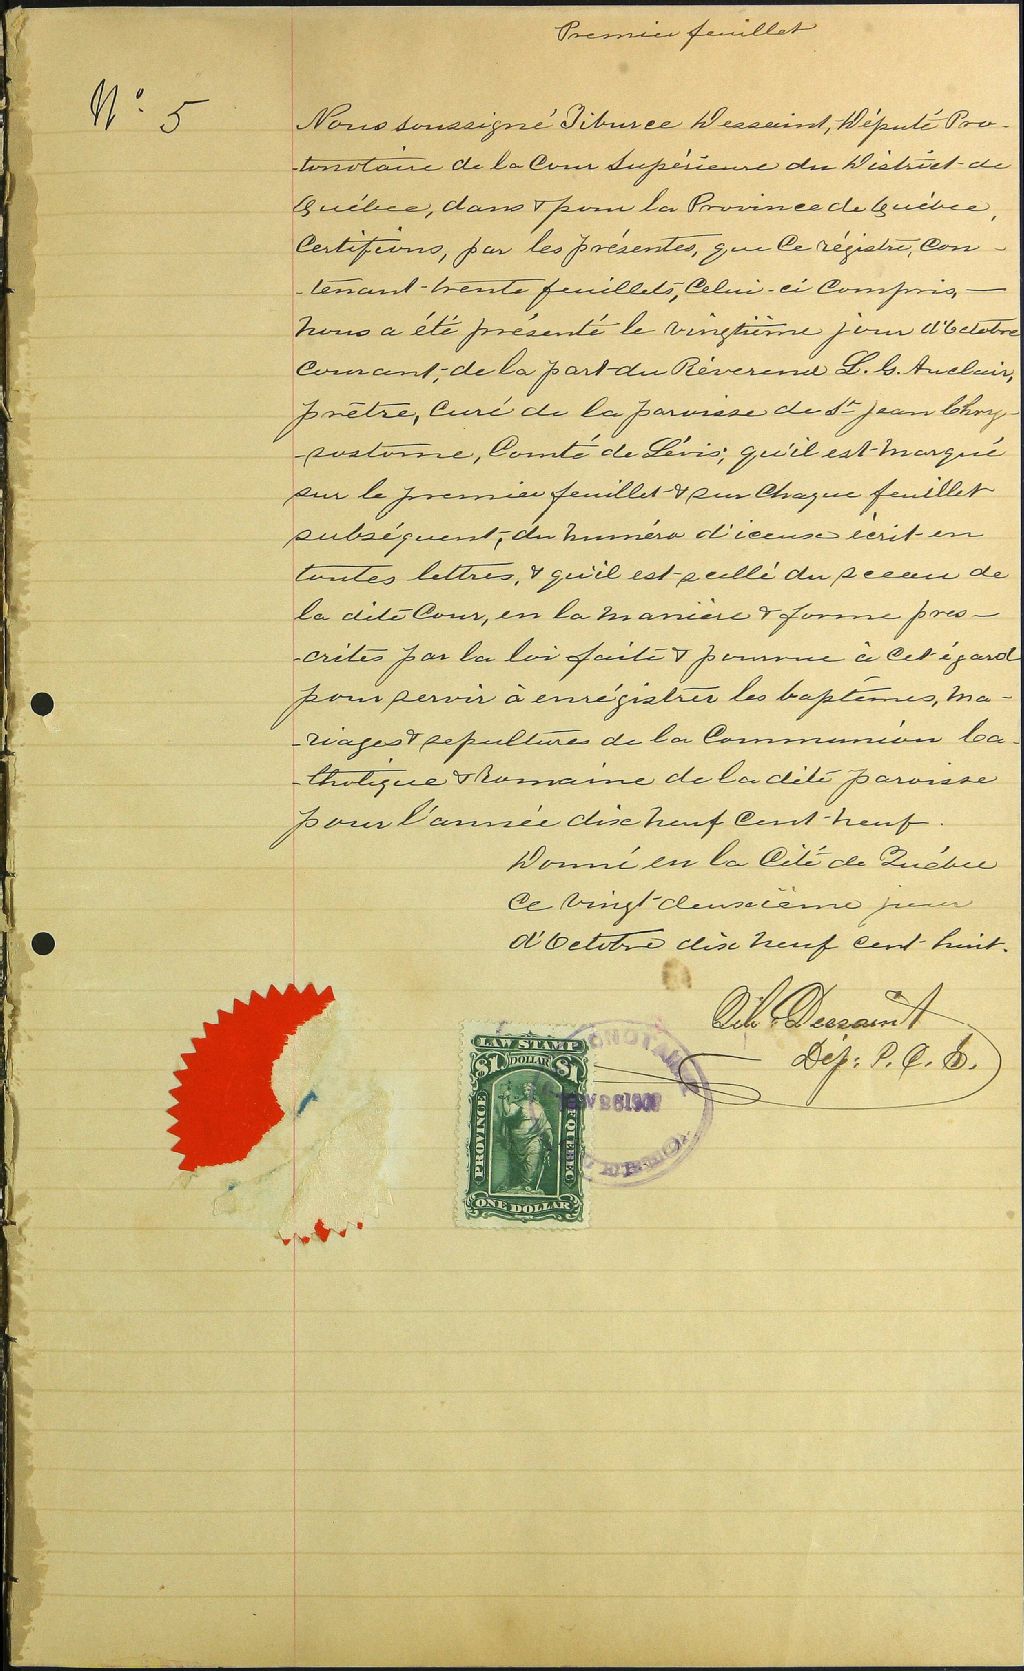 Premier feuillet
N° 5
Nous soussigné Tiburce Dessaint, Député Pro-
-tonotaire de la Cour Supérieure du District de
Québec, dans & pour la Province de Québec,
Certifions, par les présentes, que ce régistre, con-
-tenant trente feuillets, celui-ci compris,
nous a été présenté le vingtième jour d'Octobre
courant, de la part du Révérend L. G. Auclair,
prêtre, curé de la paroisse de St Jean Chry-
-sostome, Comté de Lévis; qu'il est marqué
sur le premier feuillet & sur chaque feuillet
subséquent, du numéro d'iceux écrit en
toutes lettres, & qu'il est scellé du sceau de
la dite Cour, en la manière & forme pres-
-crites par la loi faite & pourvue à cet égard
pour servir à enrégistrer les baptêmes, ma-
-riages & sépultures de la Communion Ca-
-tholique & Romaine de la dite paroisse
pour l'année dix neuf cent neuf.
Donné en la Cité de Québec
ce vingt-deuxième jour
d'Octobre dix neuf cent huit.
Tib. Dessaint
Dép: P. C. S.
LAW STAMP
$1 DOLLAR $1
PROVINCE
OF QUEBEC
ONE DOLLAR